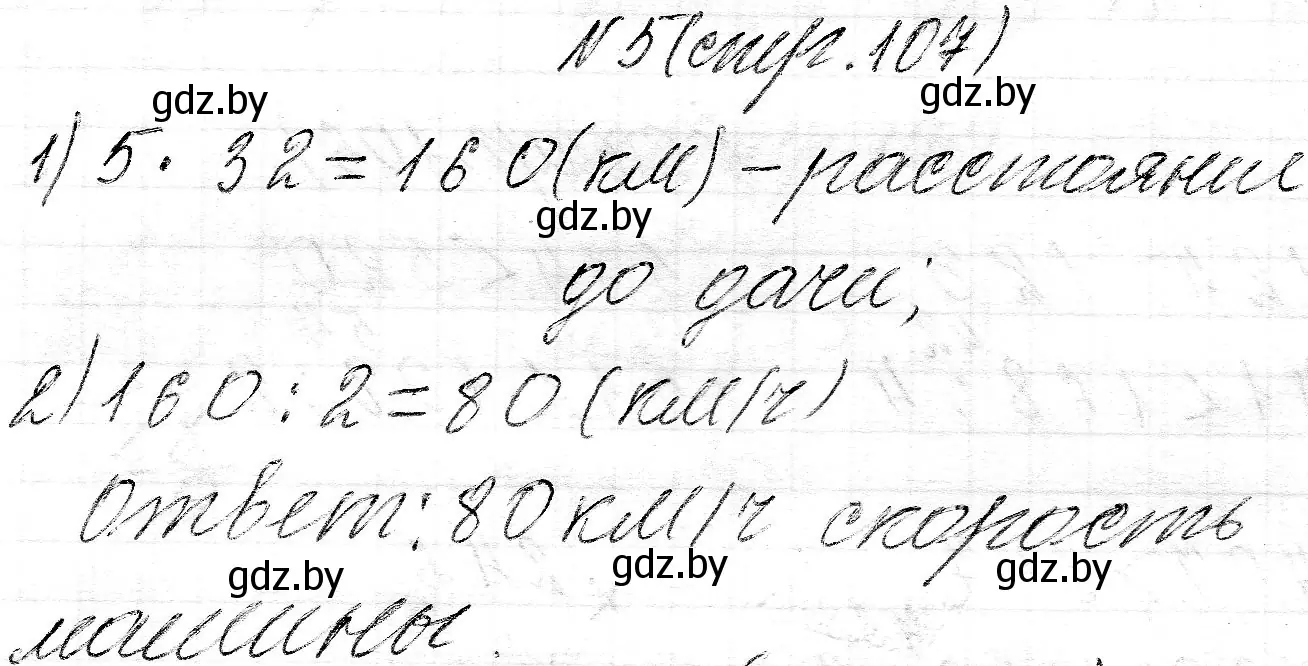 N5(стр.107)
gdz.by gdz.by
1) 5 · 32 = 160 (км) - расстояние
gdz.by
до дачи;
2) 160 : 2 = 80 (км/ч)
Ответ: 80 км/ч скорость
gdz.by gdz.by gdz.by
машины.